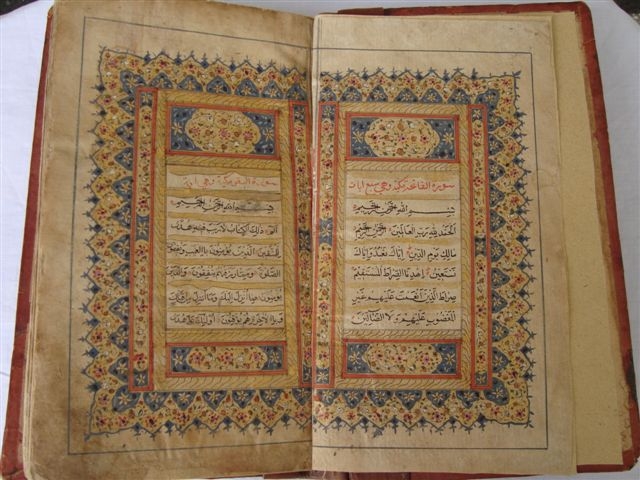 سورة الفاتحة مكية وهي سبع ايات
بسم الله الرحمن الرحيم
الحمد لله رب العالمين الرحمن الرحيم
مالك يوم الدين اياك نعبد واياك
نستعين اهدنا الصراط المستقيم
صراط الذين انعمت عليهم غير
المغضوب عليهم ولا الضالين
سورة البقرة وهي
بسم الله الرحمن الرحيم
الم ذلك الكتاب لا ريب فيه هدى
للمتقين الذين يؤمنون بالغيب ويقيمون
الصلوة ومما رزقناهم ينفقون والذين
يؤمنون بما انزل اليك وما انزل من قبلك
وبالاخرة هم يوقنون اولئك على هدى